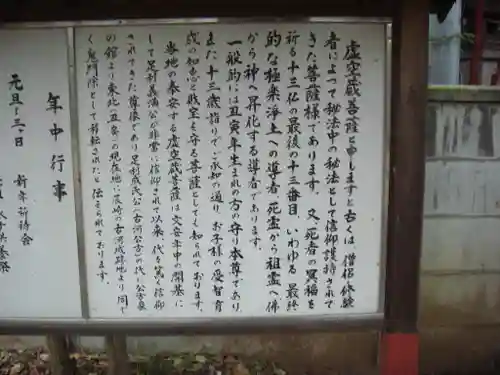 虚空蔵菩薩と申しますと古くは、僧侶体験
者によって秘法中の秘法として信仰護持されて
きた菩薩様であります。又、死者の冥福を
祈る十三仏の最後の十三番目、いわゆる最終
的な極楽浄土への導者、死霊から祖霊へ佛
から神へ昇化する導者であります。
一般的には丑寅年生まれの方の守り本尊であり、
また十三歳詣りでご承知の通り、お子様の受智育
成の知恵と財宝を守る菩薩として知られております。
当地の奉安する虚空蔵菩薩は、文安年中の開基に
して足利義満公が非常に信仰されて以来、代を篤く信仰
されてきた尊像であり足利成氏公(古河公方)の代、公方
の館より東北(丑寅)の現在地に
鬼門除として移転されたと伝えられております。
年中行事
元旦~三、日 新年祈祷会